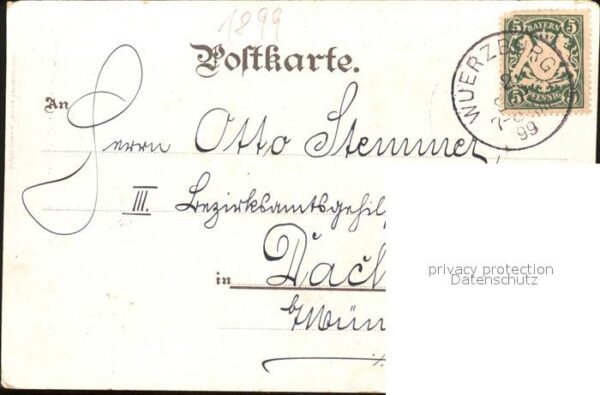 1899
Postkarte.
BAYERN
5 5
5 PFENNIG 5
WUERZBURG 2
99
An
Herrn Otto Stemmer
III. Bezirksamtsgehil
in Dach
b/Mün
privacy protection
Datenschutz